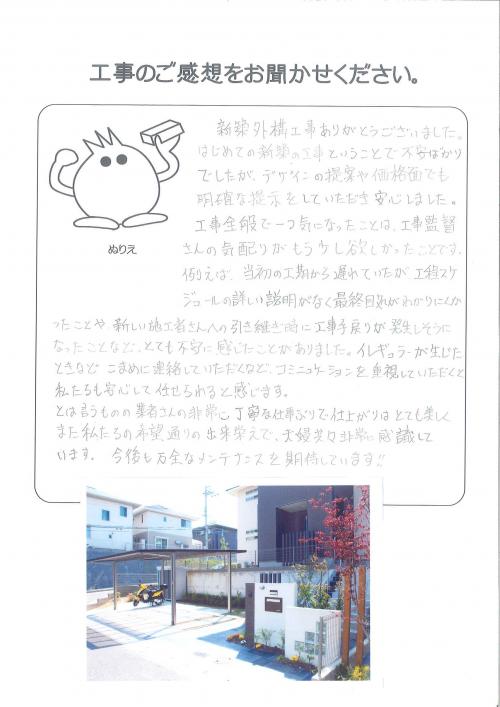 工事のご感想をお聞かせください。
新築外構工事ありがとうございました。
はじめての新築の工事ということで不安ばかり
でしたが、デザインの提案や価格面でも
明確な提示をしていただき安心しました。
工事全般で一つ気になったことは、工事監督
さんの気配りがもう少し欲しかったことです。
例えば、当初の工期から遅れていたが、工程スケ
ジュールの詳しい説明がなく最終日程がわかりにくか
ったことや、新しい施工者さんへの引き継ぎ時に工事手戻りが発生しそうに
なったことなど、とても不安に感じたことがありました。イレギュラーが生じた
ときなど こまめに連絡していただくなど、コミニュケーションを重視していただくと
私たちも安心して任せられると感じます。
とは言うものの業者さんの非常に丁寧な仕事ぶりで仕上がりはとても美しく
また私たちの希望通りの出来栄えで、夫婦共々非常に感識して
います。 今後も万全なメンテナンスを期待しています!!
ぬりえ